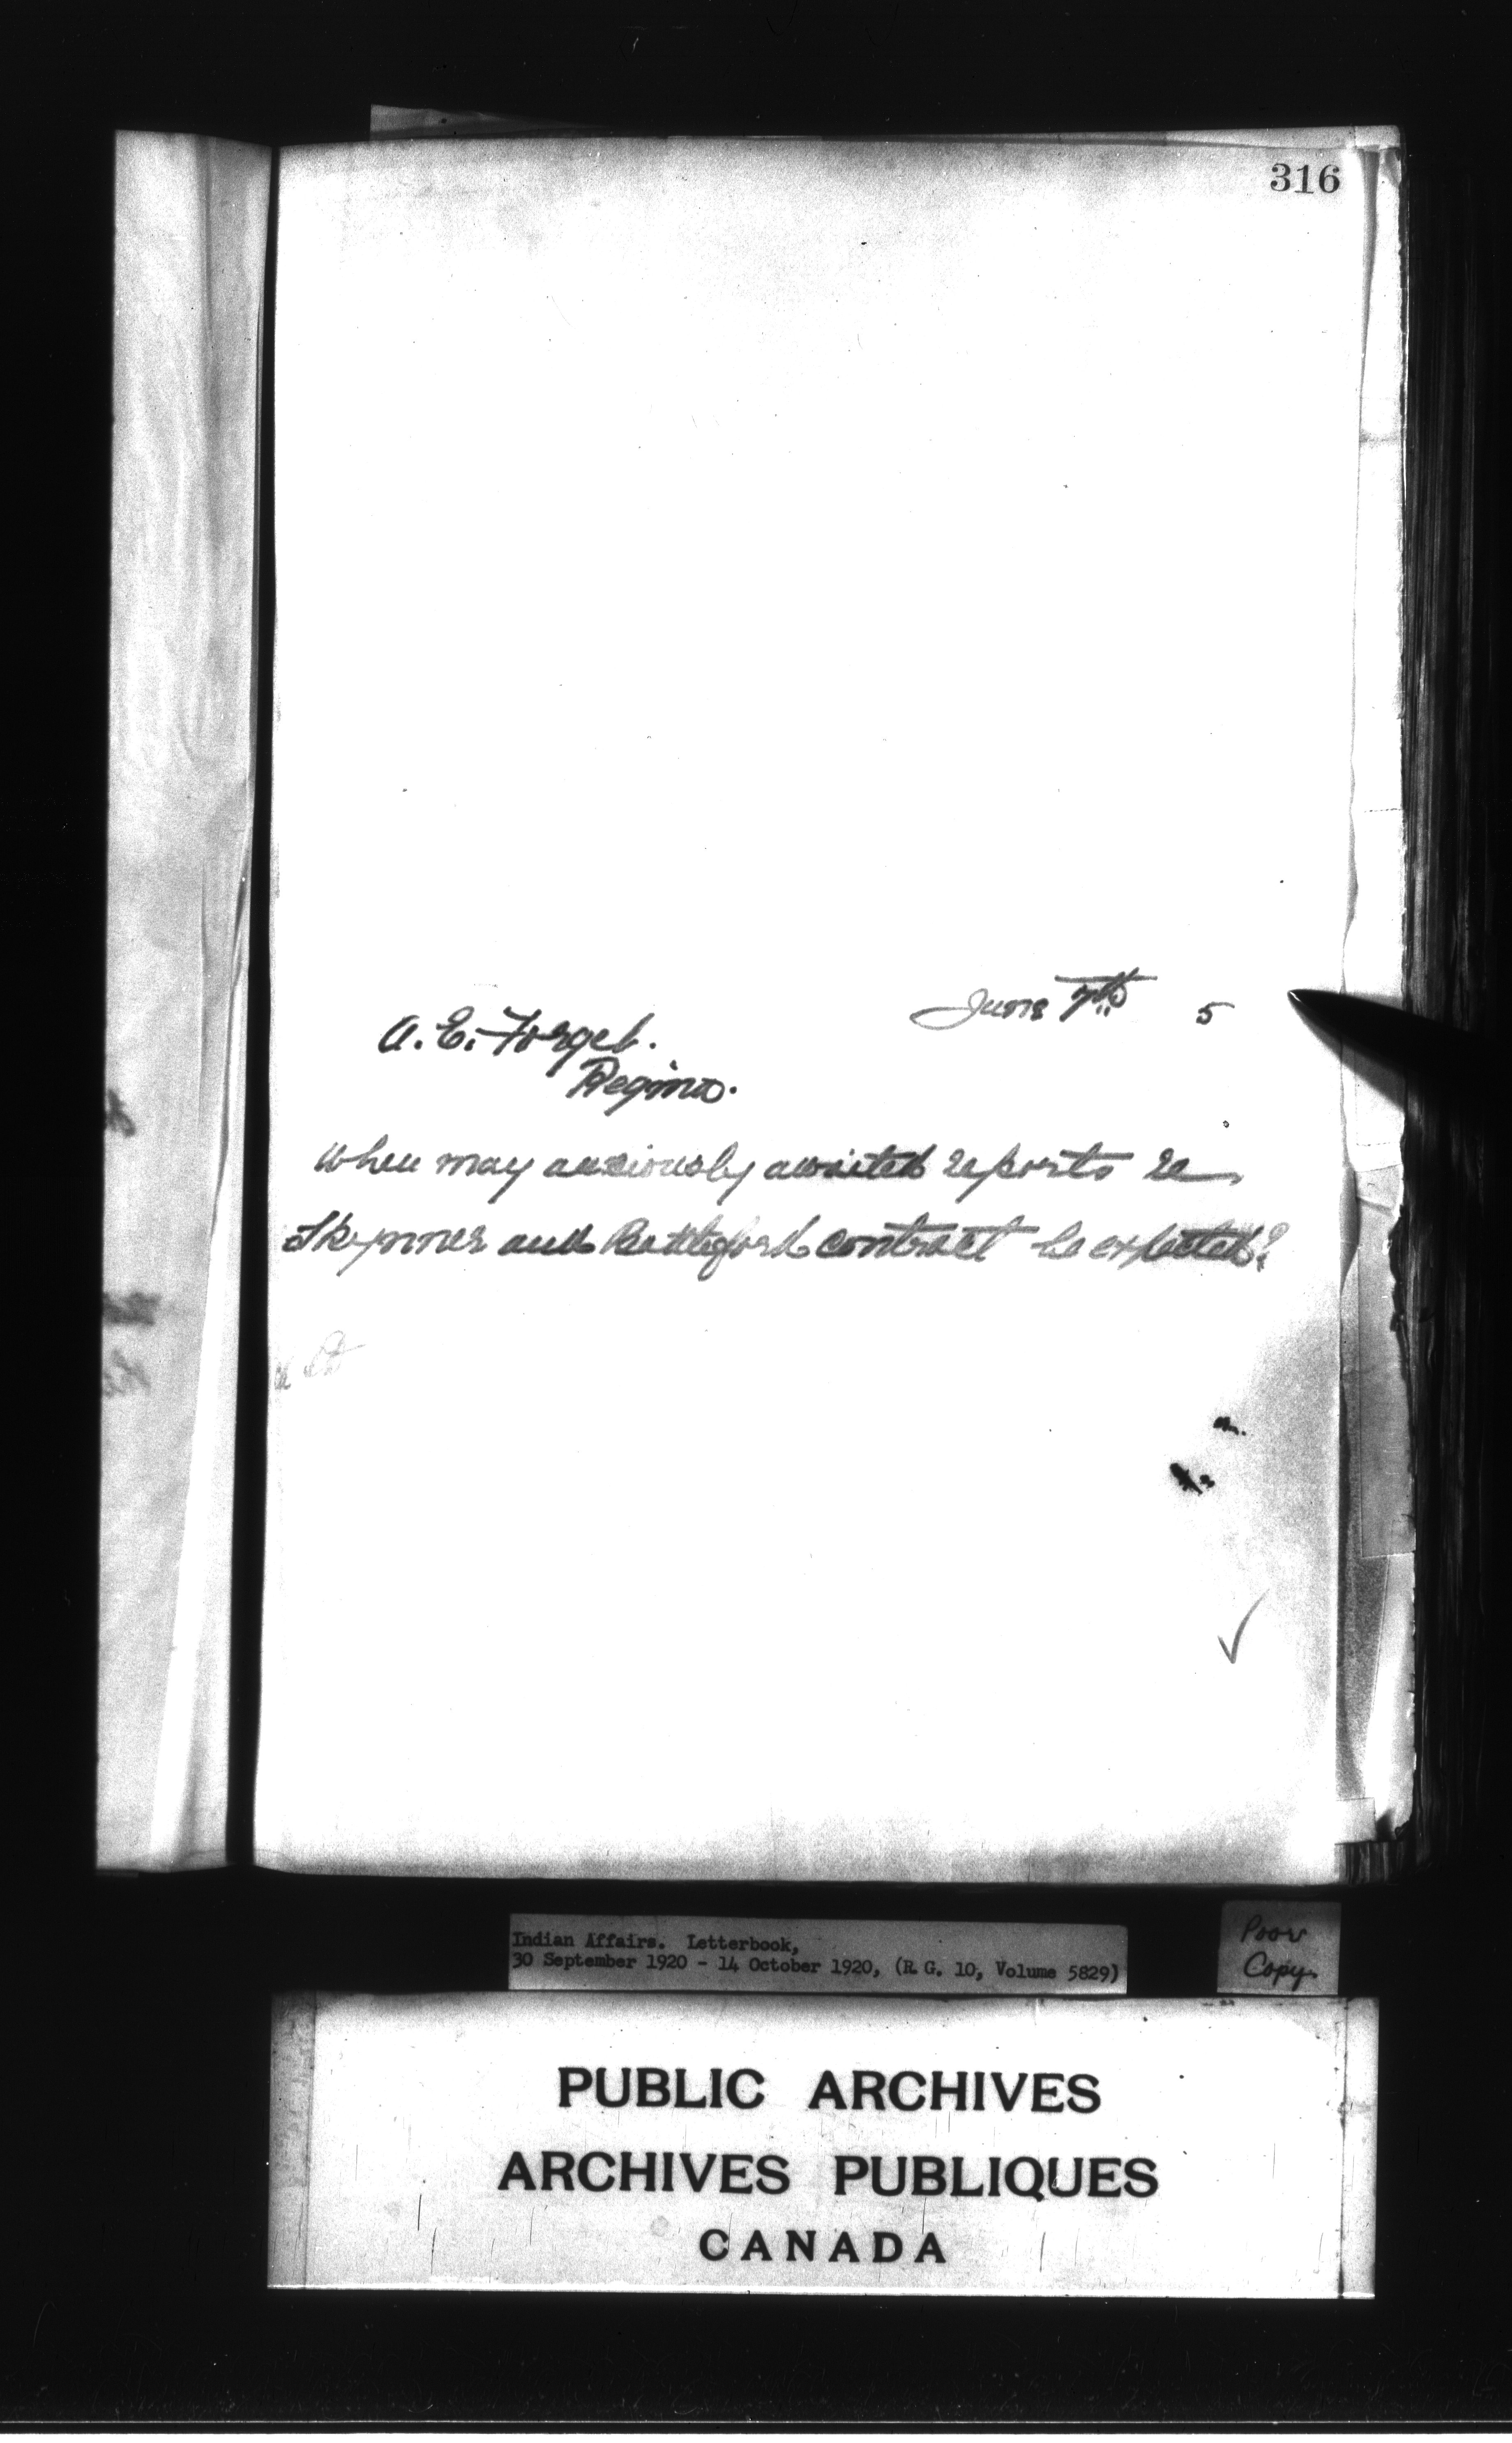 316
June 7th 5
A. E. Forget.
Regina.
When may anxiously awaited reports re
Skynner and Battleford contract be expected?
Indian Affairs. Letterbook,
30 September 1920 - 14 October 1920, (R.G. 10, Volume 5829)
Poor
Copy
PUBLIC ARCHIVES
ARCHIVES PUBLIQUES
CANADA